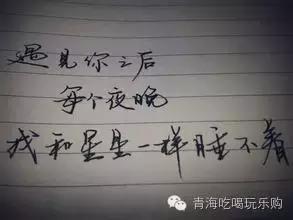 遇见你之后
每个夜晚
我和星星一样睡不着
青海吃喝玩乐购